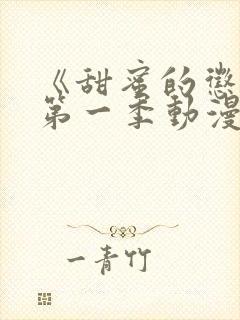 《甜蜜的懲
第一季動漫
一青竹